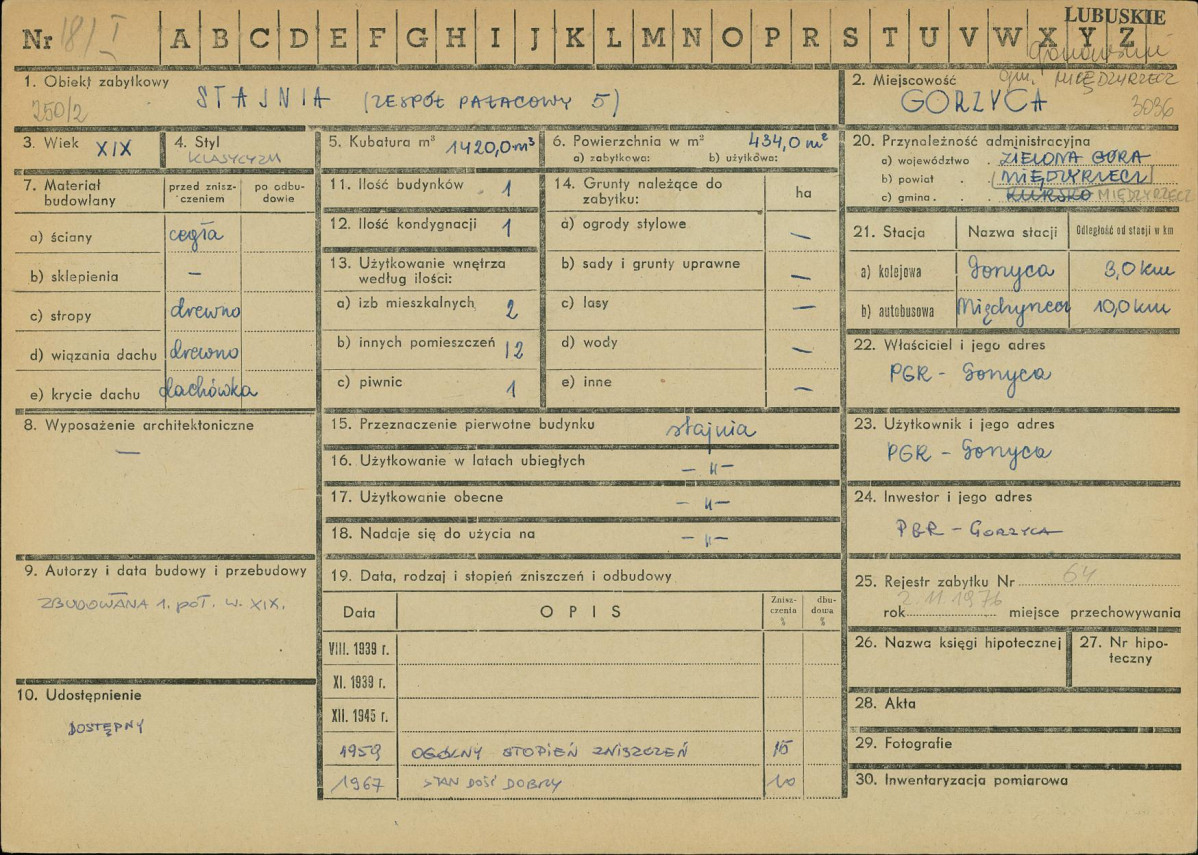 LUBUSKIE
Nr 18/I A B C D E F G H I J K L M N O P R S T U V W X Y Z
1. Obiekt zabytkowy
250/2
STAJNIA (ZESPÓŁ PAŁACOWY 5)
2. Miejscowość
gm. MIĘDZYRZECZ
GORZYCA
3036
3. Wiek XIX
4. Styl
KLASYCYZM
5. Kubatura m³ 1420,0 m³
6. Powierzchnia w m² 434,0 m²
a) zabytkowa: b) użytkowa:
7. Materiał budowlany
przed zniszczeniem
po odbudowie
a) ściany cegła
b) sklepienia –
c) stropy drewno
d) wiązania dachu drewno
e) krycie dachu dachówka
8. Wyposażenie architektoniczne
–
9. Autorzy i data budowy i przebudowy
ZBUDOWANA 1. POŁ. W. XIX.
10. Udostępnienie
DOSTĘPNY
11. Ilość budynków 1
12. Ilość kondygnacji 1
13. Użytkowanie wnętrza
według ilości:
a) izb mieszkalnych 2
b) innych pomieszczeń 12
c) piwnic 1
14. Grunty należące do
zabytku: ha
a) ogrody stylowe –
b) sady i grunty uprawne –
c) lasy –
d) wody –
e) inne –
15. Przeznaczenie pierwotne budynku stajnia
16. Użytkowanie w latach ubiegłych – „ –
17. Użytkowanie obecne – „ –
18. Nadaje się do użycia na – „ –
19. Data, rodzaj i stopień zniszczeń i odbudowy
Data OPIS Zniszczenia % dbudowa %
VIII. 1939 r.
XI. 1939 r.
XII. 1945 r.
1959 OGÓLNY STOPIEŃ ZNISZCZEŃ 15
1967 STAN DOŚĆ DOBRY 10
20. Przynależność administracyjna
a) województwo ZIELONA GÓRA
b) powiat MIĘDZYRZECZ
c) gmina KURSKO MIĘDZYRZECZ
21. Stacja Nazwa stacji Odległość od stacji w km
a) kolejowa Gorzyca 3,0 km
b) autobusowa Międzyrzecz 10,0 km
22. Właściciel i jego adres
PGR - Gorzyca
23. Użytkownik i jego adres
PGR - Gorzyca
24. Inwestor i jego adres
PGR - GORZYCA
25. Rejestr zabytku Nr 64
2.11.1976
rok miejsce przechowywania
26. Nazwa księgi hipotecznej
27. Nr hipoteczny
28. Akta
29. Fotografie
30. Inwentaryzacja pomiarowa